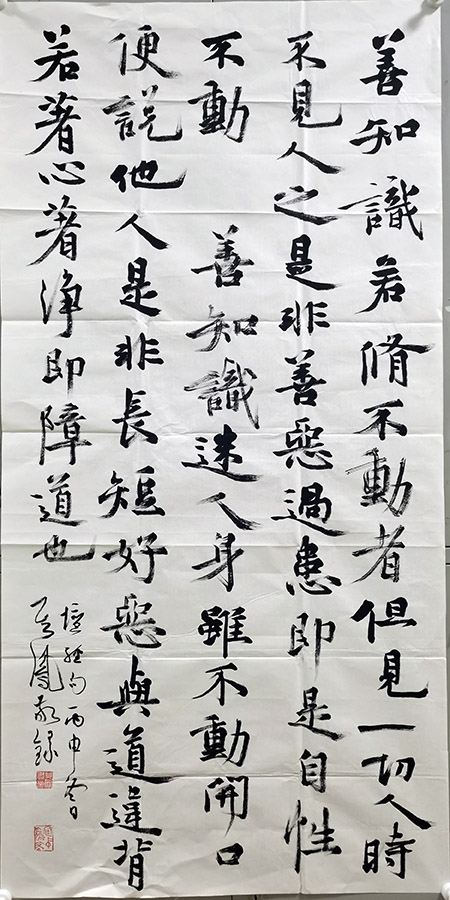 善知識若脩不動者但見一切人時
不見人之是非善惡過患即是自性
不動　善知識迷人身雖不動開口
便説他人是非長短好惡與道違背
若著心著淨即障道也
壇經句丙申冬日
敬錄